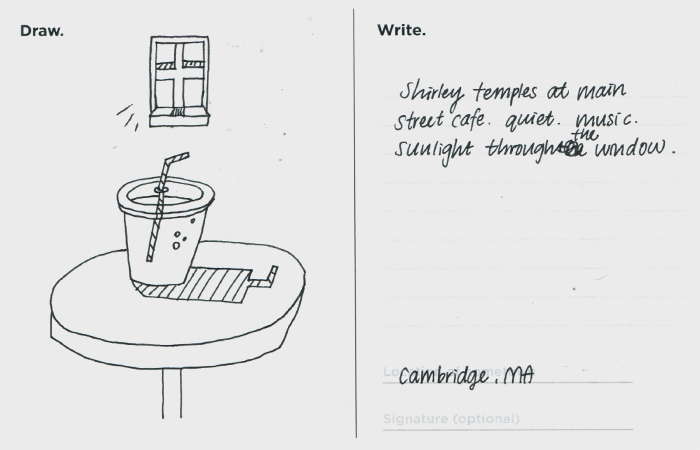 Draw.
Write.
Shirley temples at main
street cafe. quiet. music.
the
sunlight through window.
Cambridge, MA
Signature (optional)